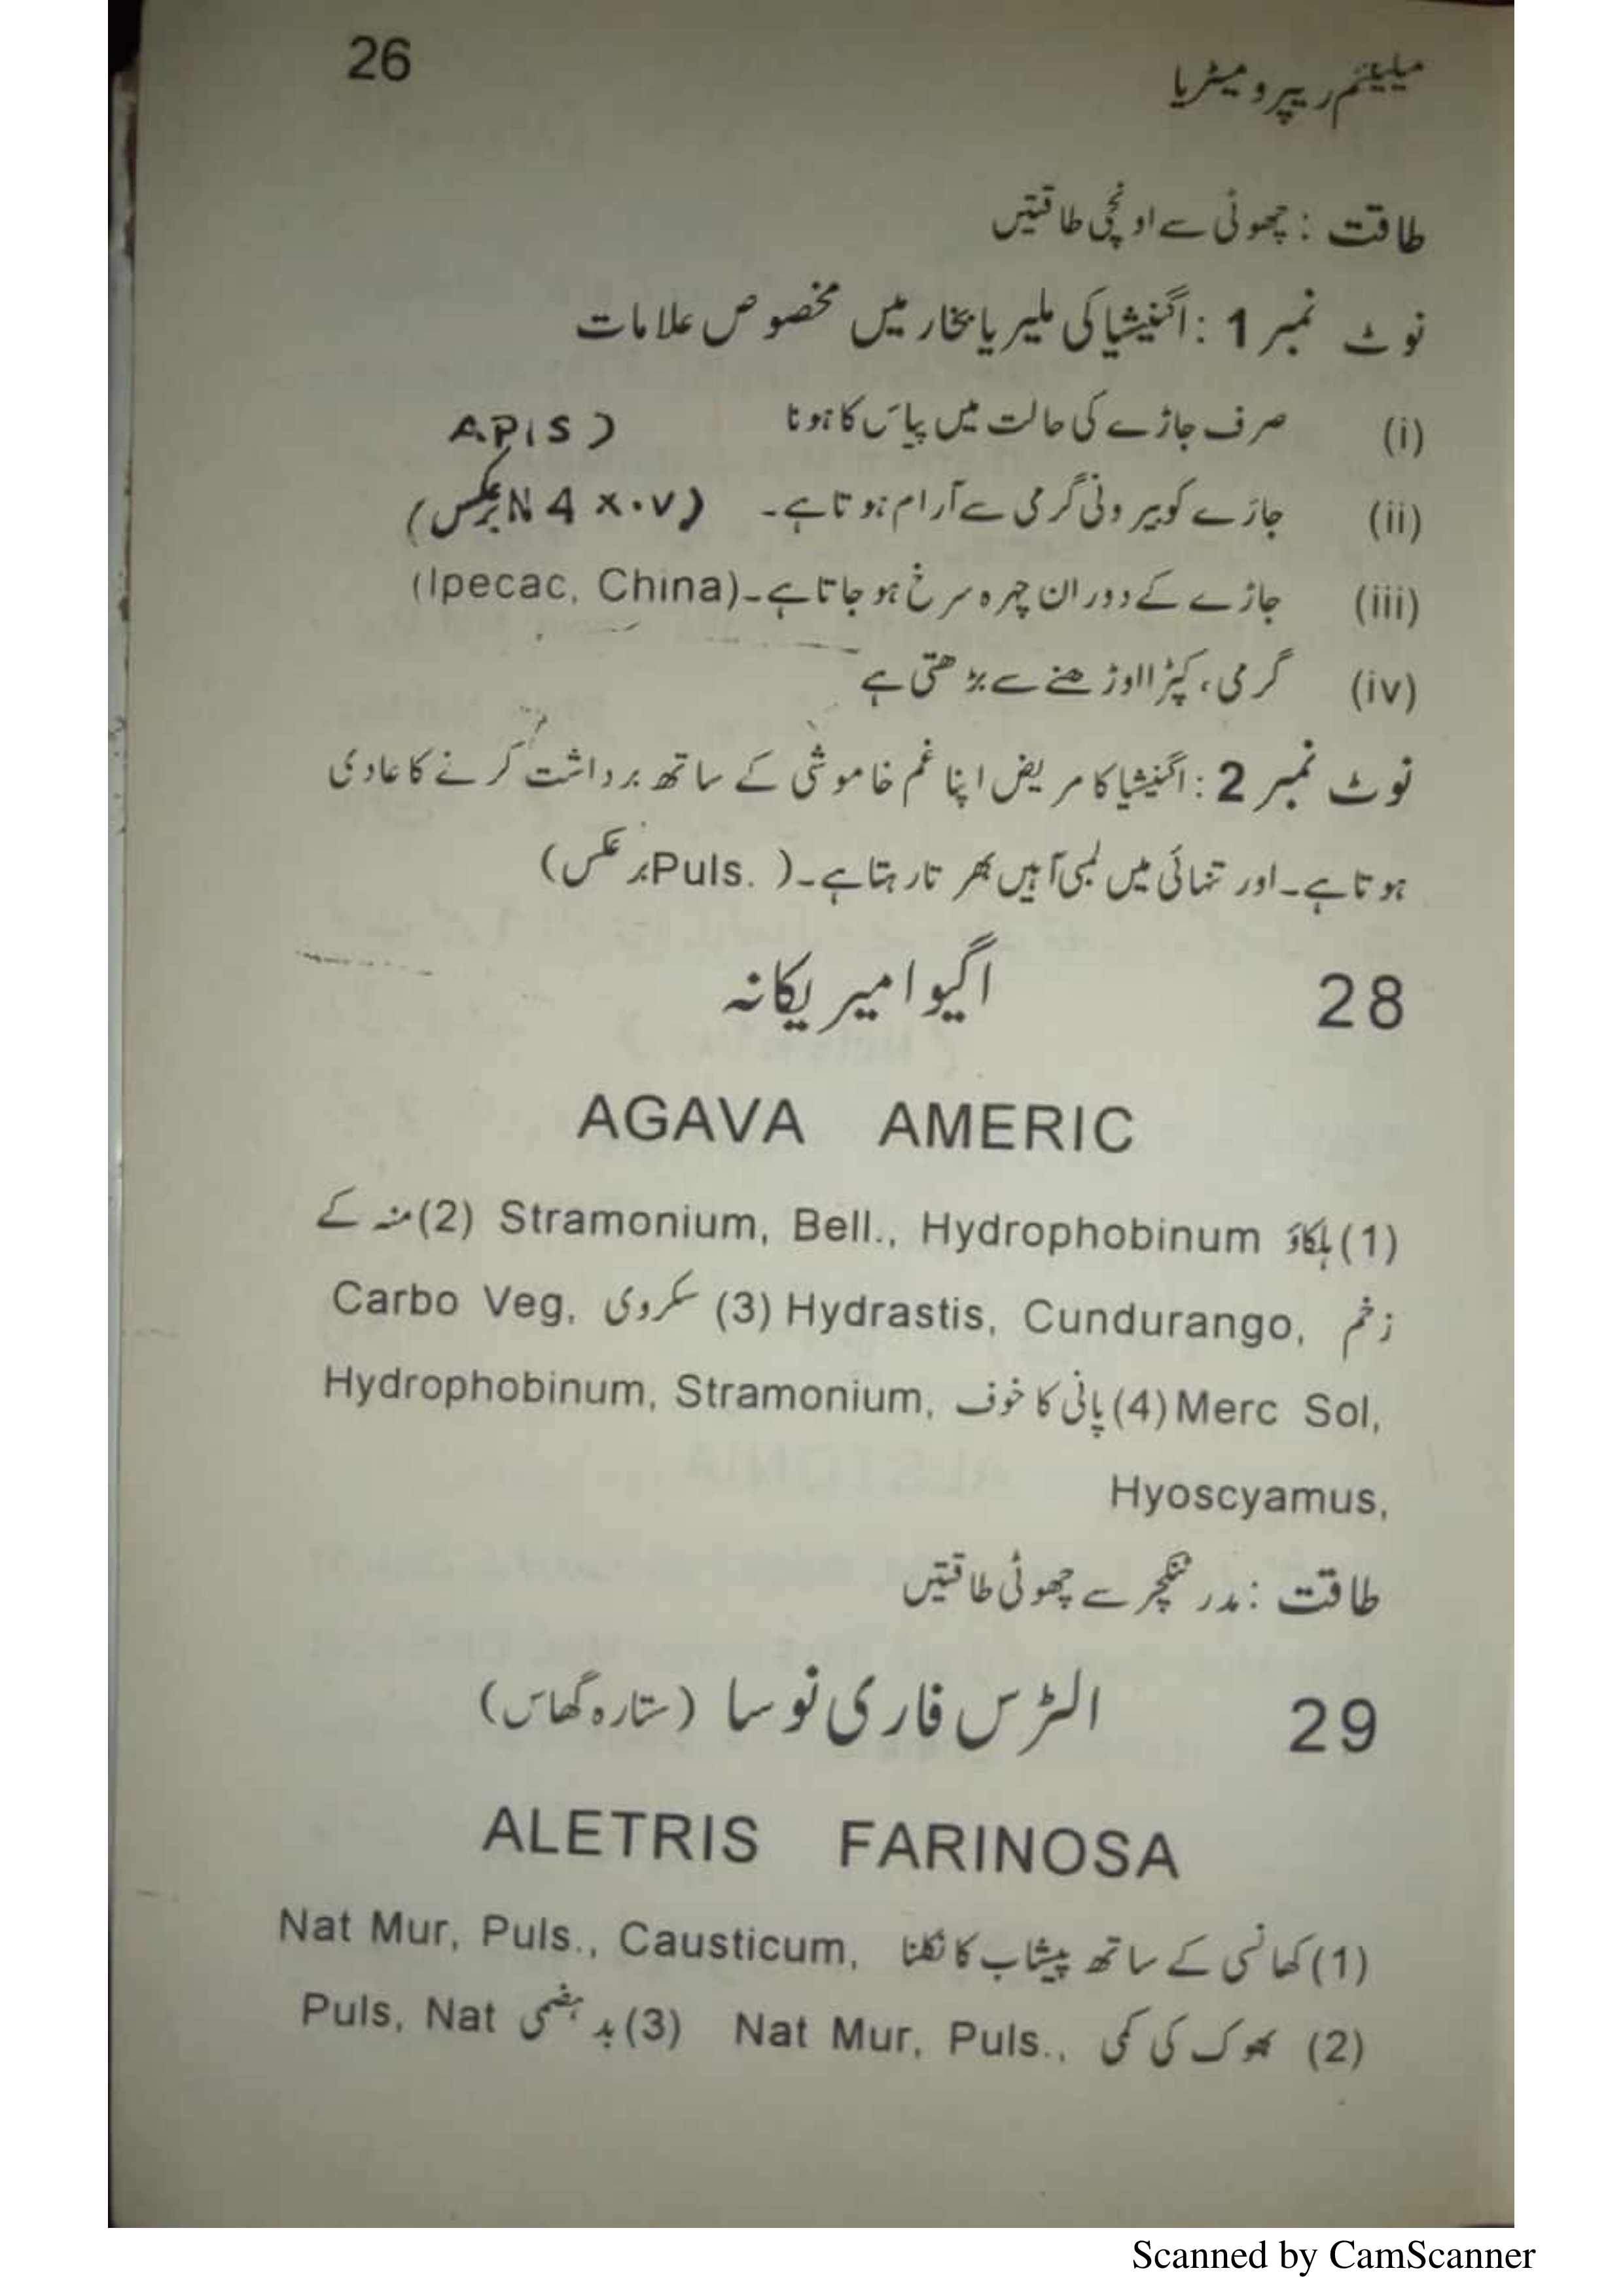 26
میلینیم ریپرومیٹریا
طاقت : چھوٹی سے اونچی طاقتیں
نوٹ نمبر 1 : اگنیشیا کی ملیریا بخار میں مخصوص علامات
(i) صرف جاڑے کی حالت میں پیاس کا ہونا APIS )
(ii) جاڑے کو بیرونی گرمی سے آرام ہوتا ہے۔ (N 4 x . v برعکس)
(iii) جاڑے کے دوران چہرہ سرخ ہو جاتا ہے۔(Ipecac, China)
(iv) گرمی، کپڑا اوڑھنے سے بڑھتی ہے
نوٹ نمبر 2 : اگنیشیا کا مریض اپنا غم خاموشی کے ساتھ برداشت کرنے کا عادی
ہوتا ہے۔ اور تنہائی میں لمبی آہیں بھرتا رہتا ہے۔( Puls. برعکس)
28 اگیو امیریکانہ
AGAVA AMERIC
(1) ہلکاؤ Stramonium, Bell., Hydrophobinum (2) منہ کے
زخم Hydrastis, Cundurango, (3) سکروی Carbo Veg,
Merc Sol, (4) پانی کا خوف Hydrophobinum, Stramonium,
Hyoscyamus,
طاقت : مدر ٹنکچر سے چھوٹی طاقتیں
29 الٹرس فاری نوسا (ستارہ گھاس)
ALETRIS FARINOSA
(1) کھانسی کے ساتھ پیشاب کا نکلنا Nat Mur, Puls., Causticum,
(2) بھوک کی کمی Nat Mur, Puls., (3) بد ہضمی Puls, Nat
Scanned by CamScanner